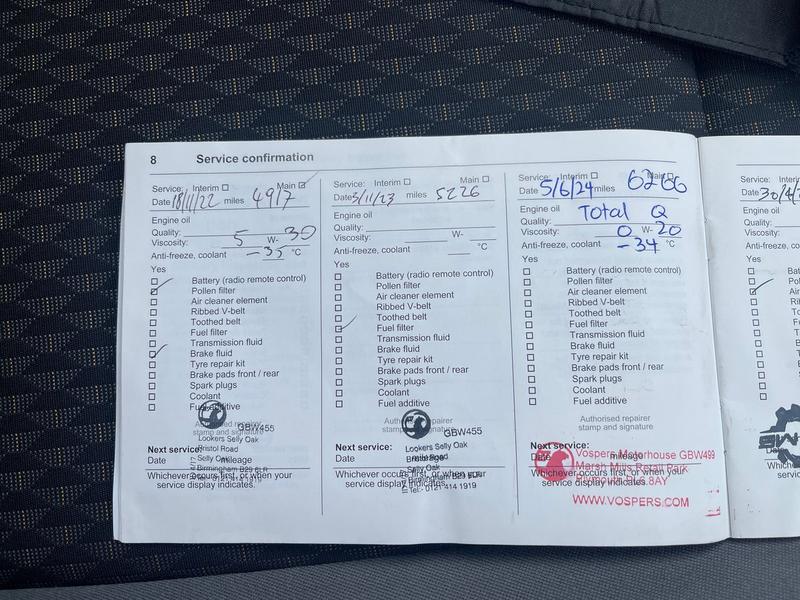 8 Service confirmation
Service: Interim ☐ Main ☑
Date 18/11/22 miles 4917
Engine oil
Quality:
Viscosity: 5 W- 30
Anti-freeze, coolant -35 °C
Yes
☐ Battery (radio remote control)
☑ Pollen filter
☐ Air cleaner element
☐ Ribbed V-belt
☐ Toothed belt
☐ Fuel filter
☐ Transmission fluid
☑ Brake fluid
☐ Tyre repair kit
☐ Brake pads front / rear
☐ Spark plugs
☐ Coolant
☐ Fuel additive
stamp and signature
GBW455
Lookers Selly Oak
Bristol Road
Selly Oak
Birmingham B29 6LR
Next service:
Date mileage
Whichever occurs first, or when your
service display indicates.
Service: Interim ☐ Main ☐
Date 3/11/23 miles 5226
Engine oil
Quality:
Viscosity: W-
Anti-freeze, coolant °C
Yes
☐ Battery (radio remote control)
☐ Pollen filter
☐ Air cleaner element
☐ Ribbed V-belt
☐ Toothed belt
☑ Fuel filter
☐ Transmission fluid
☐ Brake fluid
☐ Tyre repair kit
☐ Brake pads front / rear
☐ Spark plugs
☐ Coolant
☐ Fuel additive
GBW455
Lookers Selly Oak
Selly Oak
Tel:- 0121 414 1919
Next service:
Date
Whichever occurs first, or when your
service display indicates.
Service: Interim ☐ Main ☐
Date 5/6/24 miles 6266
Engine oil Total Q
Quality:
Viscosity: 0 W- 20
Anti-freeze, coolant -34 °C
Yes
☐ Battery (radio remote control)
☐ Pollen filter
☐ Air cleaner element
☐ Ribbed V-belt
☐ Toothed belt
☐ Fuel filter
☐ Transmission fluid
☐ Brake fluid
☐ Tyre repair kit
☐ Brake pads front / rear
☐ Spark plugs
☐ Coolant
☐ Fuel additive
Authorised repairer
stamp and signature
Next service:
Date mileage
Vospers Motorhouse GBW499
Marsh Mills Retail Park
Plymouth PL6 8AY
Whichever occurs first, or when your
service display indicates.
WWW.VOSPERS.COM
Service: Inter
Date 30/4/
Engine oil
Quality:
Viscosity:
Anti-freeze, co
Yes